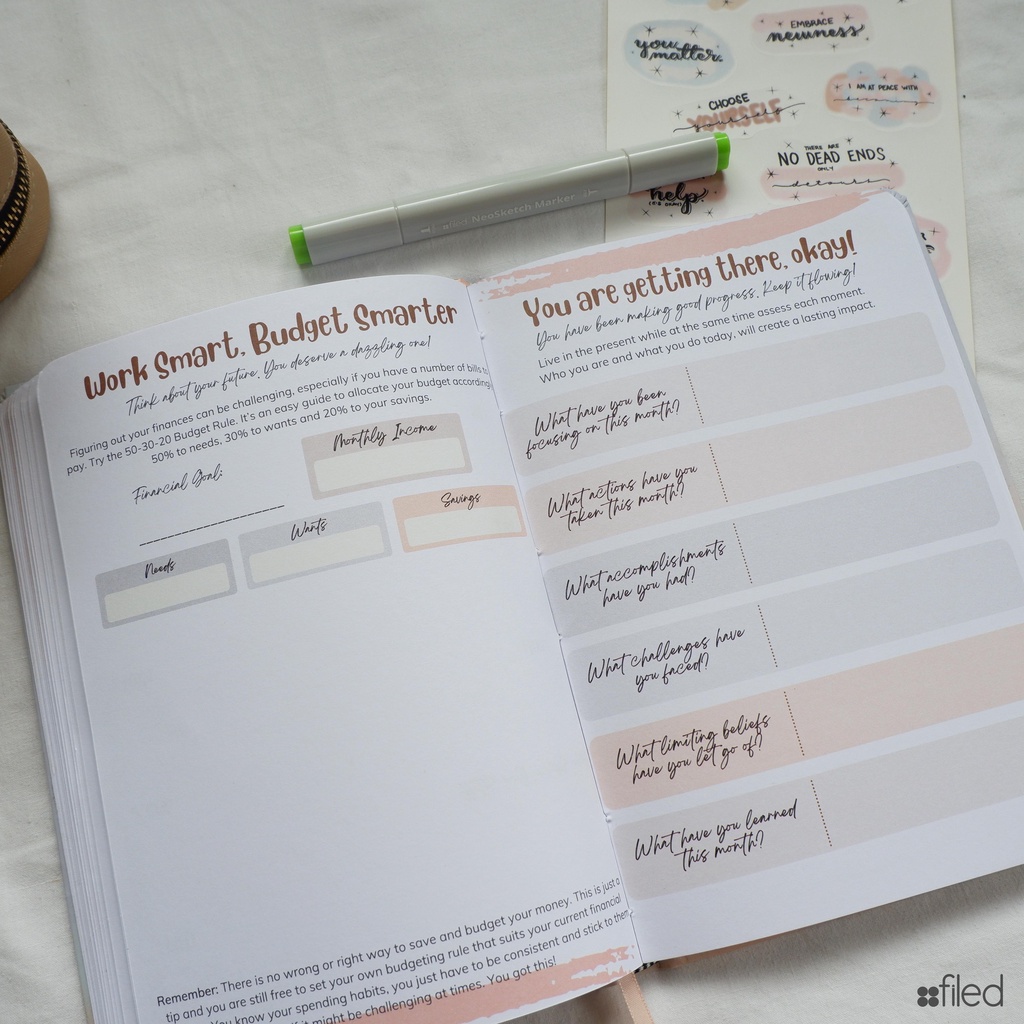 you
matter.
EMBRACE
newness
CHOOSE
YOURSELF
I AM AT PEACE WITH
THERE ARE
NO DEAD ENDS
ONLY
detours
help.
NeoSketch Marker
Work Smart, Budget Smarter
Think about your future. You deserve a dazzling one!
Figuring out your finances can be challenging, especially if you have a number of bills to
pay. Try the 50-30-20 Budget Rule. It's an easy guide to allocate your budget
50% to needs, 30% to wants and 20% to your savings.
Financial Goal:
Monthly Income
Needs
Wants
Savings
Remember: There is no wrong or right way to save and budget your money. This is just a
tip and you are still free to set your own budgeting rule that suits your current financial
You know your spending habits, you just have to be consistent and stick to
it might be challenging at times. You got this!
You are getting there, okay!
You have been making good progress. Keep it flowing!
Live in the present while at the same time assess each moment.
Who you are and what you do today, will create a lasting impact.
What have you been
focusing on this month?
What actions have you
taken this month?
What accomplishments
have you had?
What challenges have
you faced?
What limiting beliefs
have you let go of?
What have you learned
this month?
filed